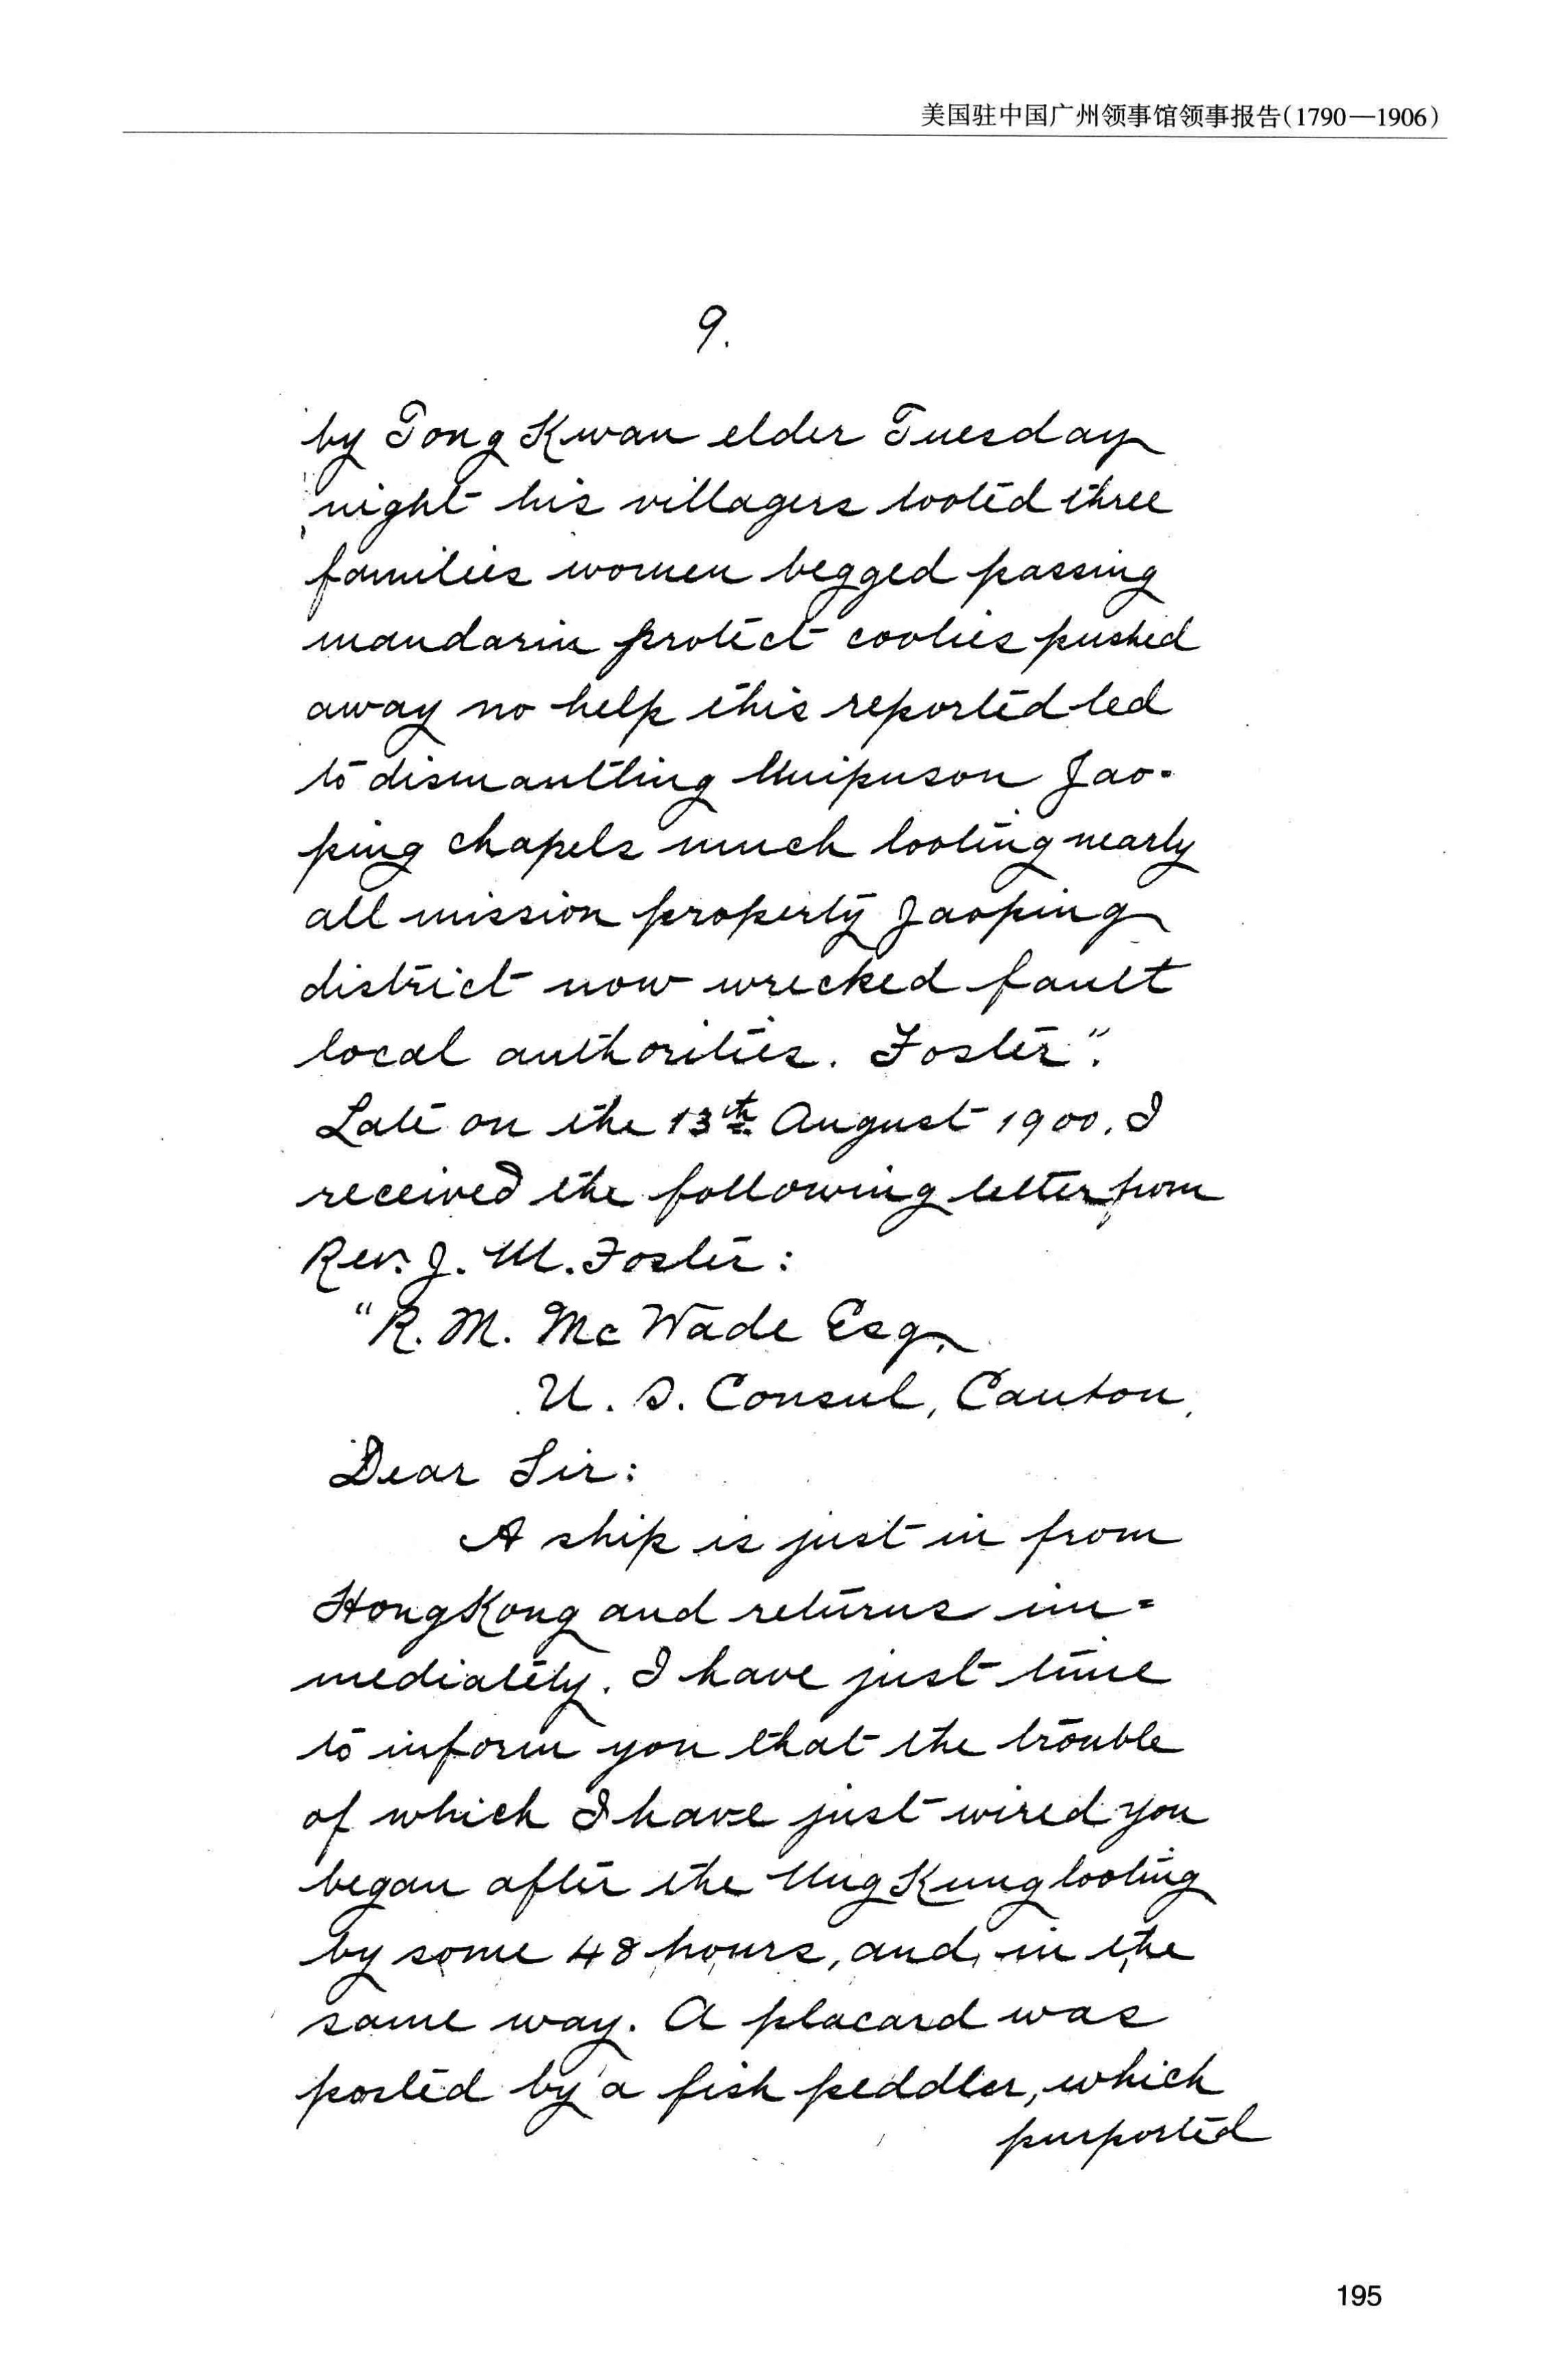 美国驻中国广州领事馆领事报告(1790—1906)
9.
by Tong Kwan elder Tuesday
night his villagers looted three
families women begged passing
mandarin protect coolies pushed
away no help this reported led
to dismantling Unipuson Jao-
ping chapels much looting nearly
all mission property Jaoping
district now wrecked fault
local authorities. Foster".
Late on the 13th August 1900, I
received the following letter from
Rev. J. M. Foster:
"R. M. McWade Esq.
U. S. Consul, Canton,
Dear Sir:
A ship is just in from
HongKong and returns im=
mediately. I have just time
to inform you that the trouble
of which I have just wired you
began after the Ung Kung looting
by some 48 hours, and, in the
same way. A placard was
posted by a fish peddler, which
purported
195